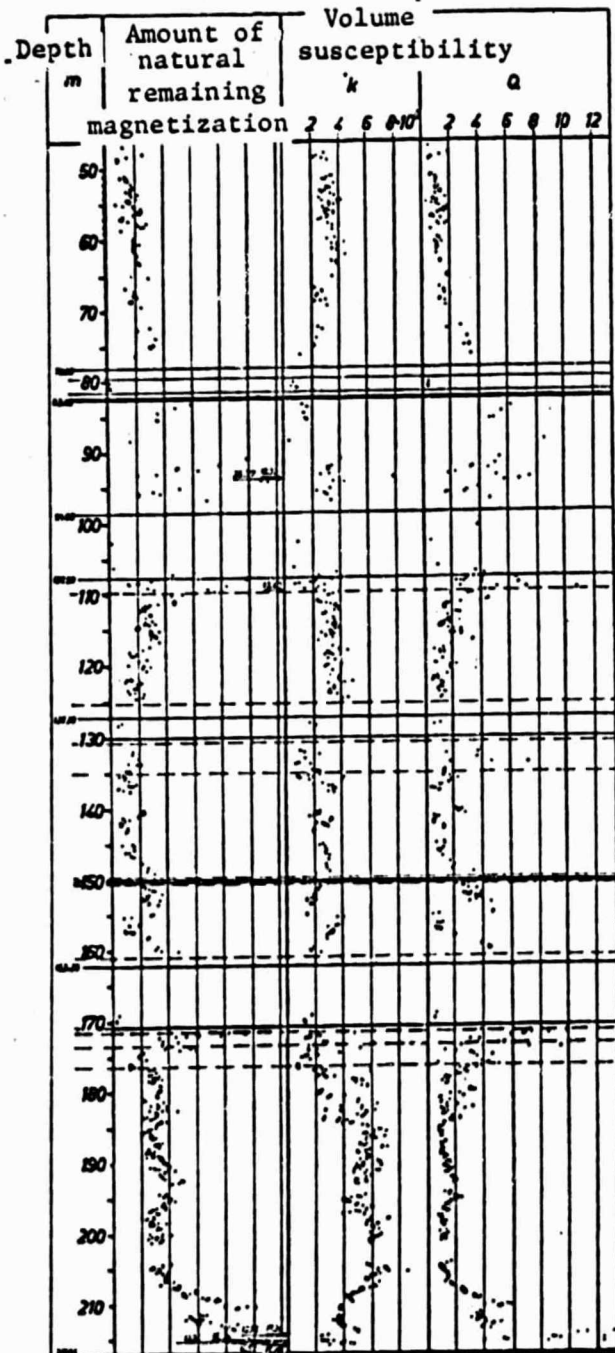 Volume
.Depth
Amount of
natural
remaining
magnetization
susceptibility
m
k
Q
2 4 6 8·10
2 4 6 8 10 12
50
60
70
80
90
100
110
120
130
140
150
160
170
180
190
200
210